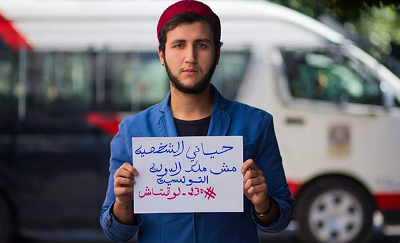 حياتي الشخصية
مش ملك الدولة
التونسية